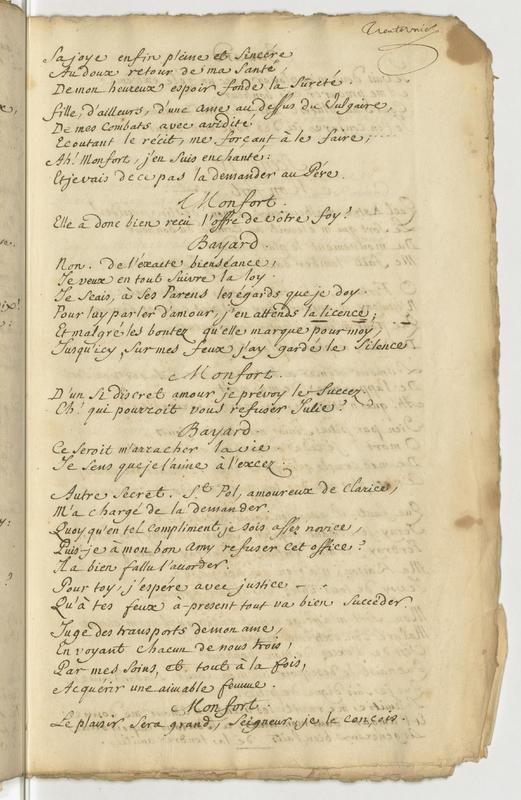 Sa joye enfin pleine et Sincére
Au doux retour de ma Santé,
De mon heureux espoir fonde la Sûreté.
fille, d'ailleurs, d'une ame au dessus du Vulgaire,
De mes Combats avec avidité
Ecoutant le récit, me forçant à le faire,
Ah! Monfort, j'en suis enchanté:
Et je vais de ce pas la demander au Pére.
Monfort.
Elle a donc bien reçu l'offre de vôtre foy?
Bayard.
Non. de l'exacte bienséance,
Je veux en tout suivre la loy.
Je scais, à Ses Parens les égards que je doy.
Pour luy parler d'amour, j'en attends la licence;
Et malgré les bontez qu'elle marque pour moy,
Jusqu'icy, Sur mes feux j'ay gardé le Silence.
Monfort.
D'un Si discret amour je prévoy le Succez.
Eh! qui pourroit vous refuser Julie?
Bayard.
Ce seroit m'arracher la vie.
Je sens que je l'aime à l'excez.
Autre Secret. St. Pol, amoureux de Clarice,
M'a chargé de la demander.
Quoy qu'en tel Compliment je sois assez novice,
Puis-je à mon bon Amy refuser cet office?
Il a bien fallu l'accorder.
Pour toy, j'espére avec justice - .
Qu'à tes feux à-present tout va bien Succéder.
Juge des transports de mon ame,
En voyant chacun de nous trois,
Par mes Soins, et tout à la fois,
Acquérir une aimable femme.
Monfort.
Le plaisir Sera grand, Seigneur, je le conçois.